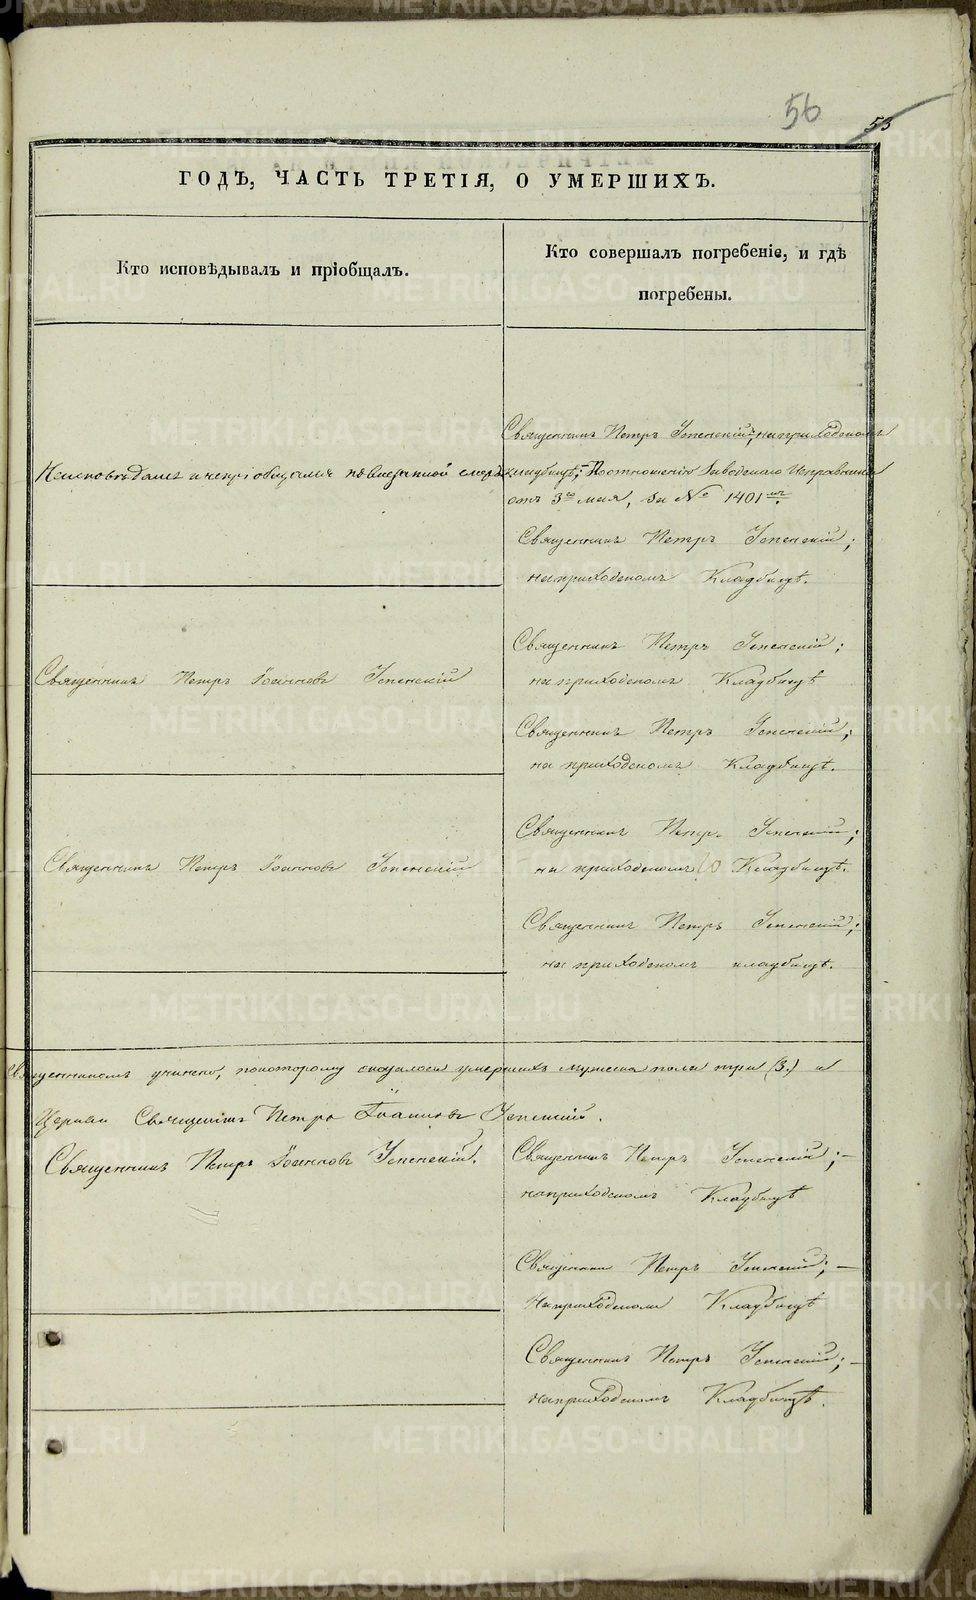 56
53
ГОДЪ, ЧАСТЬ ТРЕТІЯ, О УМЕРШИХЪ.
Кто исповѣдывалъ и пріобщалъ.
Кто совершалъ погребеніе, и гдѣ
погребены.
Священникъ Петръ Успенскій; на приходскомъ
Не исповѣданъ и не пріобщался по внезапной смерти
кладбищѣ; По отношенію Заводскаго Исправника
отъ 3го мая, за № 1401мъ.
Священникъ Петръ Успенскій;
на приходскомъ Кладбищѣ.
Священникъ Петръ Успенскій;
Священникъ Петръ Іоанновъ Успенскій
на приходскомъ Кладбищѣ
Священникъ Петръ Успенскій;
на приходскомъ Кладбищѣ.
Священникъ Петръ Успенскій;
Священникъ Петръ Іоанновъ Успенскій
на приходскомъ Кладбищѣ.
Священникъ Петръ Успенскій;
на приходскомъ кладбищѣ.
Священникомъ учинено, по которому оказалося умершихъ мужеска пола три (3.) и
Церкви Священникъ Петръ Іоанновъ Успенскій.
Священникъ Петръ Іоанновъ Успенскій.
Священникъ Петръ Успенскій; —
на приходскомъ Кладбищѣ
Священникъ Петръ Успенскій; —
На приходскомъ Кладбищѣ
Священникъ Петръ Успенскій; —
на приходскомъ Кладбищѣ.
METRIKI.GASO-URAL.RU